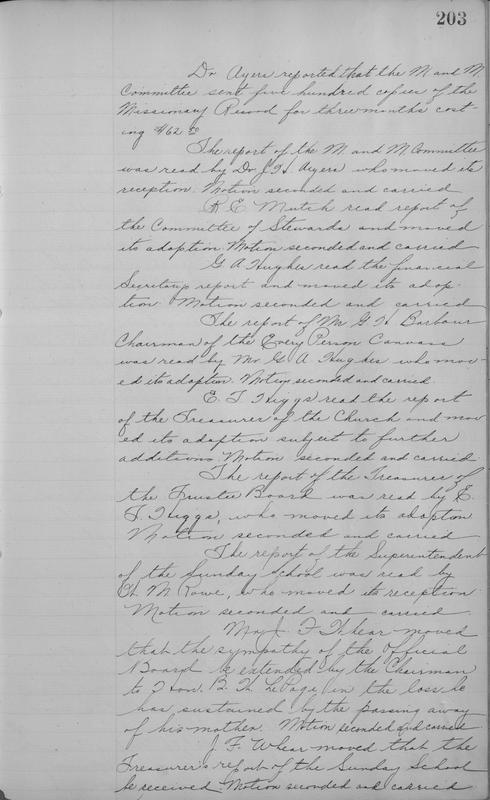 203
Dr Ayers reported that the M and M.
Committee sent five hundred copies of the
Missionary Record for three months cost-
ing $62
The report of the M. and M. Committee
was read by Dr J. H Ayers who moved its
reception. Motion seconded and carried
R E Mutch read report of
the Committee of Stewards and moved
its adoption Motion seconded and carried
G A Hughes read the financial
Secretarys report and moved its adop-
tion. Motion seconded and carried
The report of Mr G H Barbour
Chairman of the Every Person Canvass
was read by Mr G A Hughes who mov-
ed its adoption. Motion seconded and carried.
E. T Higgs read the report
of the Treasurer of the Church and mov
ed its adoption subject to further
additions. Motion seconded and carried
The report of the Treasurer of
the Trustee Board was read by E.
T. Higgs, who moved its adoption
Motion seconded and carried
The report of the Superintendent
of the Sunday School was read by
M Rowe, who moved its reception.
Motion seconded and carried.
J. F Whear moved
that the sympathy of the Official
Board be extended by the Chairman
to Hon. B. LePage, in the loss he
has sustained by the passing away
of his mother. Motion seconded and carried
J. F. Whear moved that the
Treasurer's report of the Sunday School
be received. Motion seconded and carried